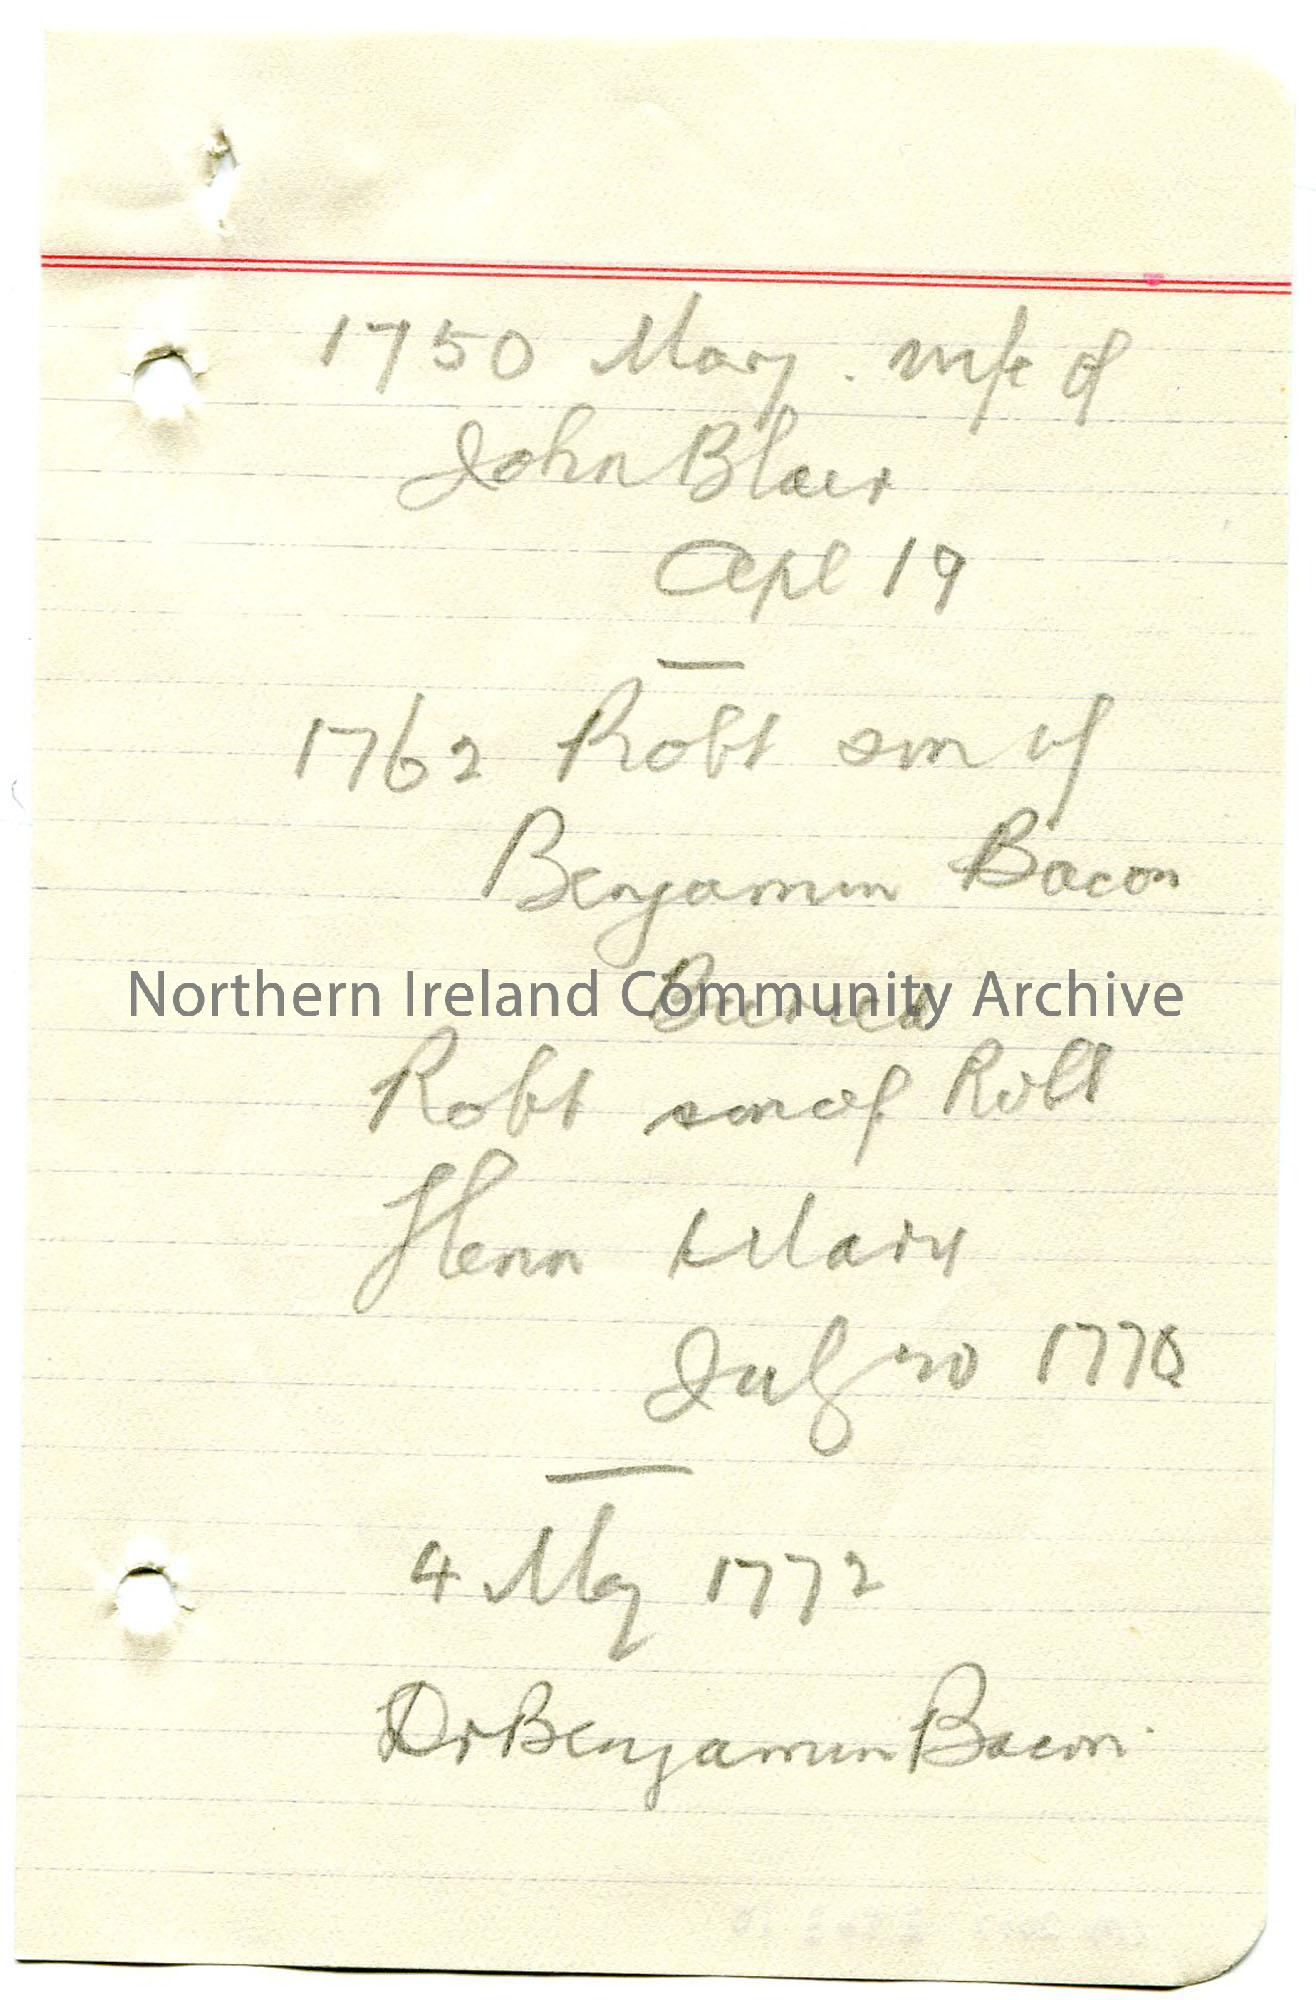 1750 Mary. wife of
John Blair
Apl 19
1762 Robt son of
Benjamin Bacon
Northern Ireland Community Archive
Buried
Robt son of Robt
Henn
July 1770
4 May 1772
Dr Benjamin Bacon